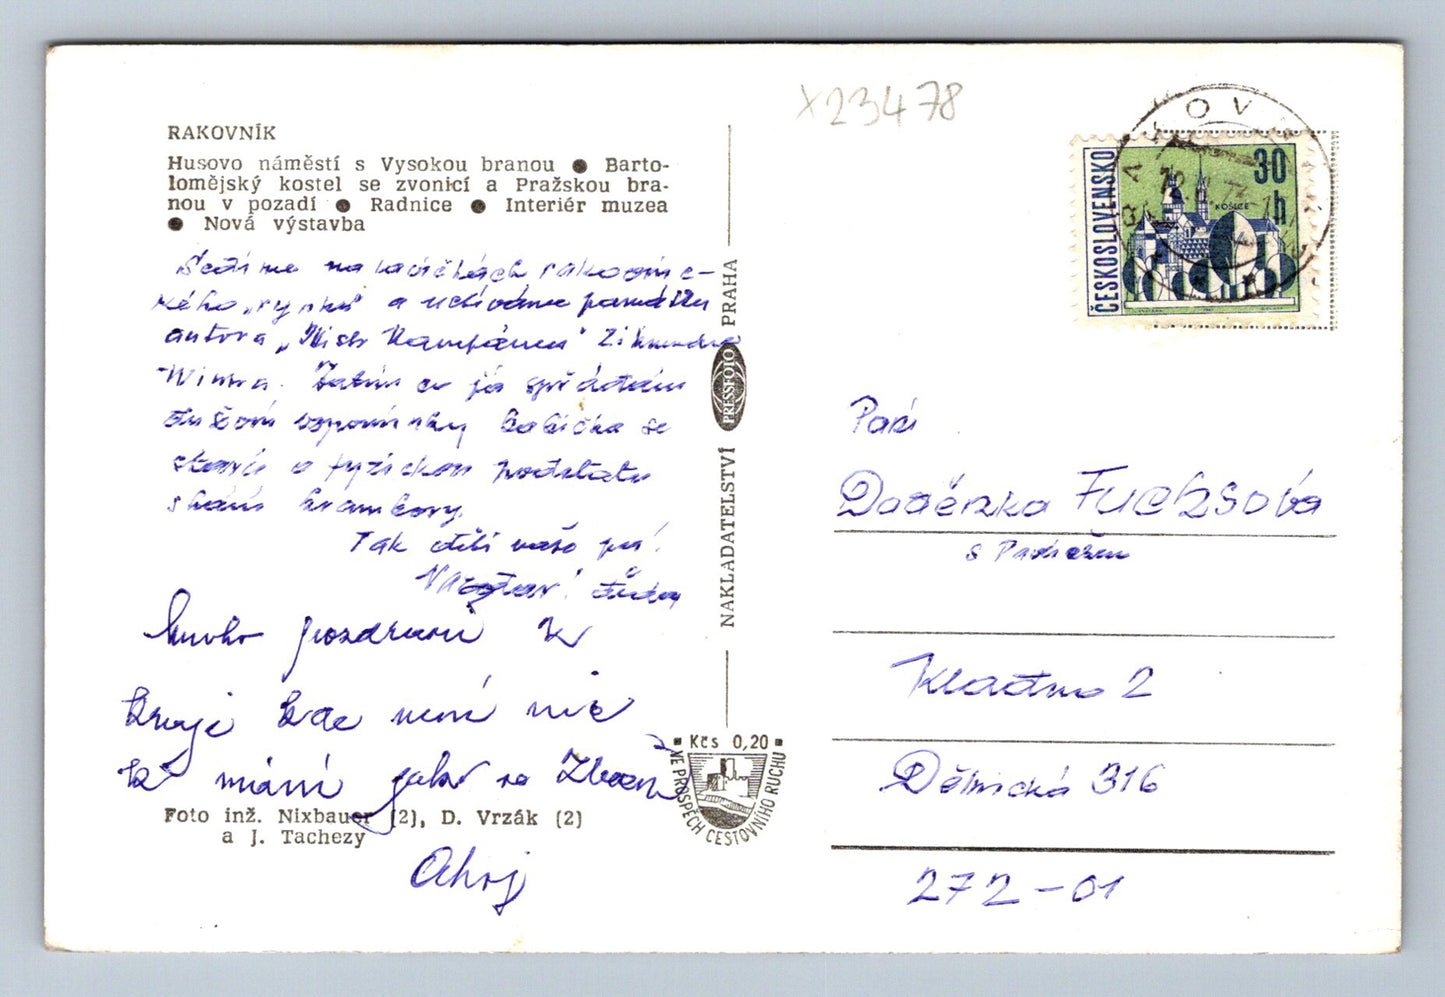 x23478
RAKOVNÍK
Husovo náměstí s Vysokou branou ● Barto-
lomějský kostel se zvonicí a Pražskou bra-
nou v pozadí ● Radnice ● Interiér muzea
● Nová výstavba
Sedíme na lavičkách rakovnic-
kého „rynku" a uctíváme památku
autora „Mistr Kampánus" Zikmunda
Wintra. Zatím co já spřádám
duševní vzpomínky babička se
stará o fyzickou podstatu
shání brambory.
Tak ať žijí vaše
děda
Mnoho pozdravů z
kraje kde není nic
k mání jako ve
Ahoj
Foto inž. Nixbauer (2), D. Vrzák (2)
a J. Tachezy
NAKLADATELSTVÍ PRESSFOTO PRAHA
Kčs 0,20
VE PROSPĚCH CESTOVNÍHO RUCHU
ČESKOSLOVENSKO
30 h
KOŠICE
Paní
Fuchsová
Kladno 2
Dělnická 316
272-01